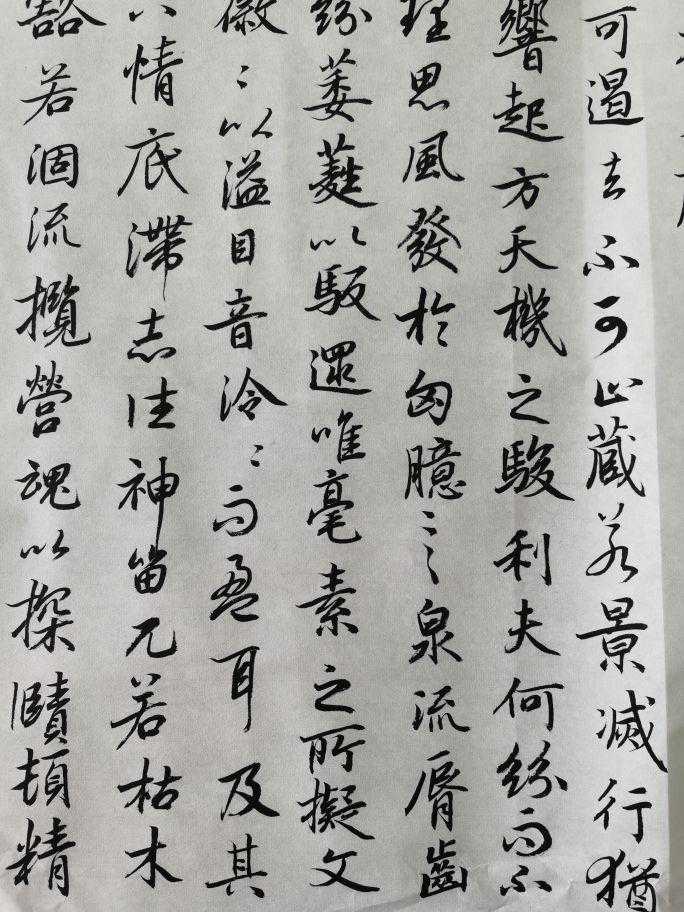 可遏去不可止蔵若景滅行猶
響起方天機之駿利夫何紛而不
理思風發於匈臆言泉流脣齒
紛萎蕤以馺遝唯毫素之所擬文
徽〻以溢目音泠〻而盈耳及其
六情底滯志往神留兀若枯木
豁若涸流攬營魂以探賾頓精